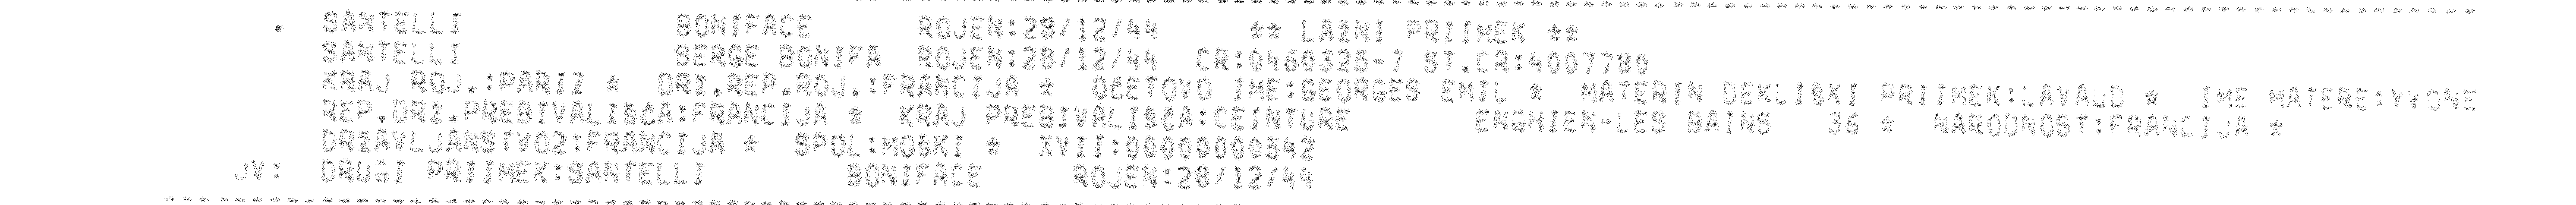 . SANTELLI BONIFACE ROJEN:28/12/44 ** LAZNI PRIIMEK **
SANTELLI SERGE BONIFA ROJEN:28/12/44 CR:0460328-7 ST.CR:4007780
KRAJ ROJ.:PARIZ * DRZ.REP.ROJ.:FRANCIJA * OCETOVO IME:GEORGES EMIL * MATERIN DEKLISKI PRIIMEK:LAVAUD * IME MATERE:YVONE
REP.DRZ.PREBIVALISCA:FRANCIJA * KRAJ PREBIVALISCA:CEINTURE ENGHIEN-LES BAINS 36 * NARODNOST:FRANCIJA *
DRZAVLJANSTVO2:FRANCIJA * SPOL:MOSKI * XVII:00000000542
JV: DRUGI PRIIMEK:SANTELLI BONIFACE ROJEN:28/12/44